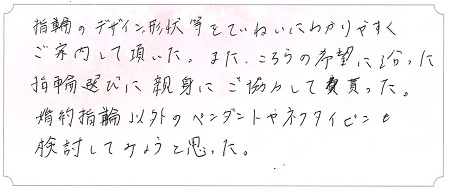 指輪のデザイン形状等をていねいにわかりやすく
ご案内して頂いた。また、こちらの希望に沿った
指輪選びに親身にご協力して貰った。
婚約指輪以外のペンダントやネクタイピンも
検討してみようと思った。